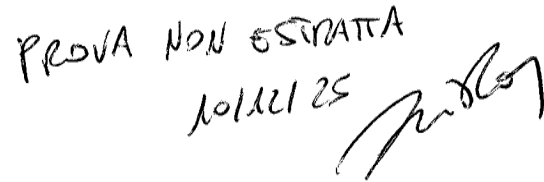 PROVA NON ESTRATTA
10/12/25